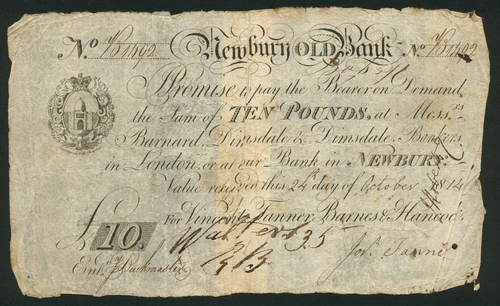 No. B1492 Newbury OLD Bank No. B1492
Promise to pay the Bearer on Demand
the Sum of TEN POUNDS, at Messrs.
Barnard, Dimsdale & Dimsdale, Bankers
in London, or at our Bank in NEWBURY:
Value received this 24th day of October 1814
For Vincent, Tanner, Barnes & Hancock.
£10.
Entd.
Josh. Tanner